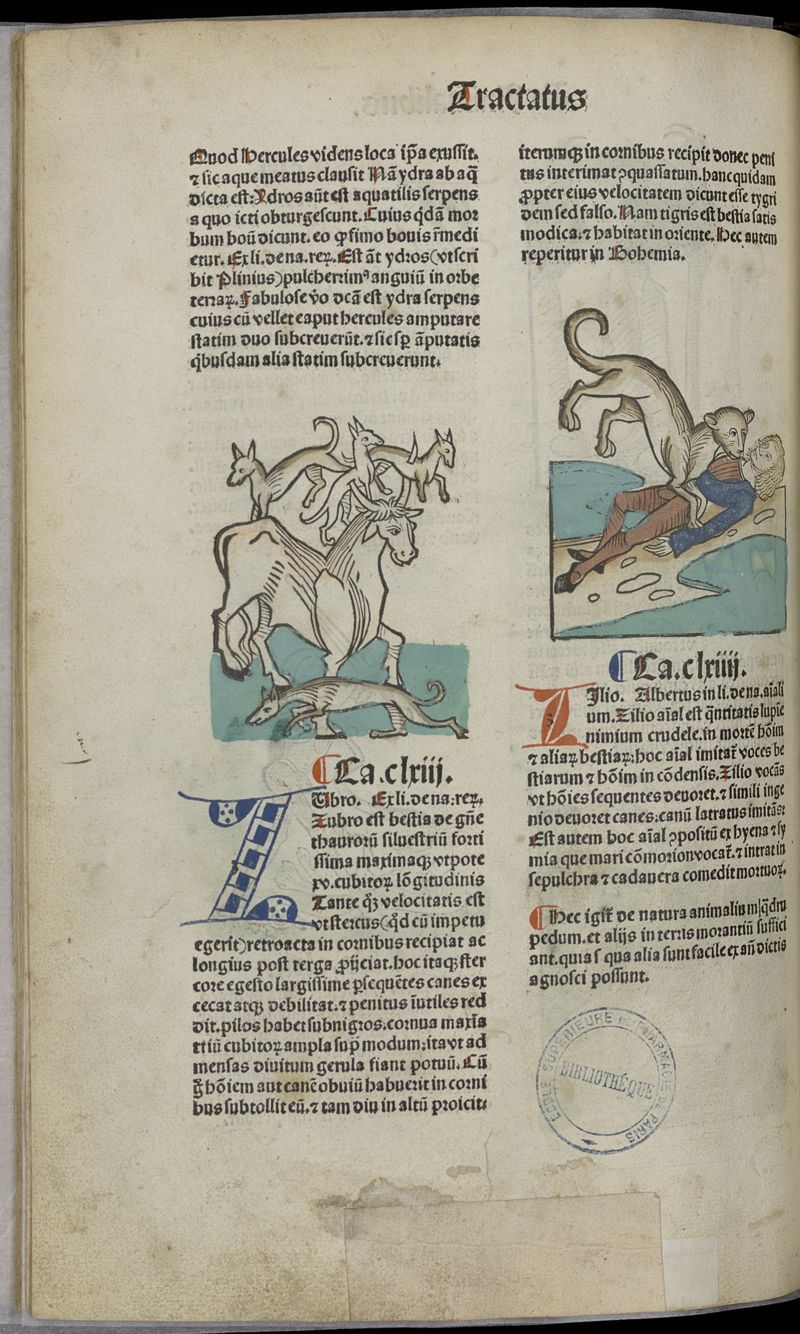 Tractatus
Quod Hercules videns loca ip̄a exussit.
⁊ sic aque meatus clausit Nā ydra ab aq̄
dicta est: Ydros aūt est aquatilis serpens
a quo icti obturgescunt. Cuius q̇dā mor
bum boū dicunt. eo ꝙ fimo bouis r̄medi
etur. Ex li. de na. reꝝ. Est āt ydros (vt scri
bit Plinius) pulcherrimꝰ anguiū in orbe
terraꝝ. Fabulose v̊o dc̄a est ydra serpens
cuius cū vellet caput hercules amputare
statim duo subcreuerūt. ⁊ sic sꝑ āputatis
q̇busdam alia statim subcreuerunt.
¶ Ca. clxiij.
ZUbro. Ex li. de na: reꝝ.
Zubro est bestia de gn̄e
thauroꝝ siluestriū forti
ssima maximaqꝫ vtpote
xv. cubitoꝝ lōgitudinis
Tante q̄ꝫ velocitatis est
vt stercus (q̇d cū impetu
egerit) retroacta in cornibus recipiat ac
longius post terga ꝓijciat. hoc itaqꝫ ster
core egesto largissime ꝑsequētes canes ex
cecat atqꝫ debilitat. ⁊ penitus iutiles red
dit. pilos habet subnigros. cornua maxīa
triū cubitoꝝ ampla sup̄ modum: ita vt ad
mensas diuitum gerula fiant potuū. Cū
hōiem aut canē obuiū habuerit in corni
bus subtollit eū. ⁊ tam diu in altū proicit:
iterumqꝫ in cornibus recipit donec peni
tus interimat ꝯquassatum. hanc quidam
ꝓpter eius velocitatem dicunt esse tygri
dem sed falso. Nam tigris est bestia satis
modica: ⁊ habitat in oriente. Hec autem
reperitur in Bohemia.
¶ Ca. clxiiij.
ZIlio. Albertus in li. de na. aīali
um. Zilio aīal est q̄ntitatis lupīe
nimium crudele. in mortē hōim
⁊ aliaꝝ bestiaꝝ: hoc aīal imitat̄ voces be
stiarum ⁊ hōim in cōdensis. Zilio vocās
vt hōies sequentes deuoret. ⁊ simili inge
nio deuoret canes: canū latratus imitās:
Est autem hoc aīal ꝯpositū ex hyena ⁊ sy
mia que mari cōmorion vocat̄. ⁊ intrat in
sepulchra ⁊ cadauera comedit mortuoꝝ.
¶ Hec igit̄ de natura animalium q̄dru
pedum. et alijs in terris morantiū suffici
ant. quia s qua alia sunt facile ex an̄ dictis
agnosci possunt.
ECOLE SUPERIEURE DE PHARMACIE DE PARIS
BIBLIOTHÈQUE